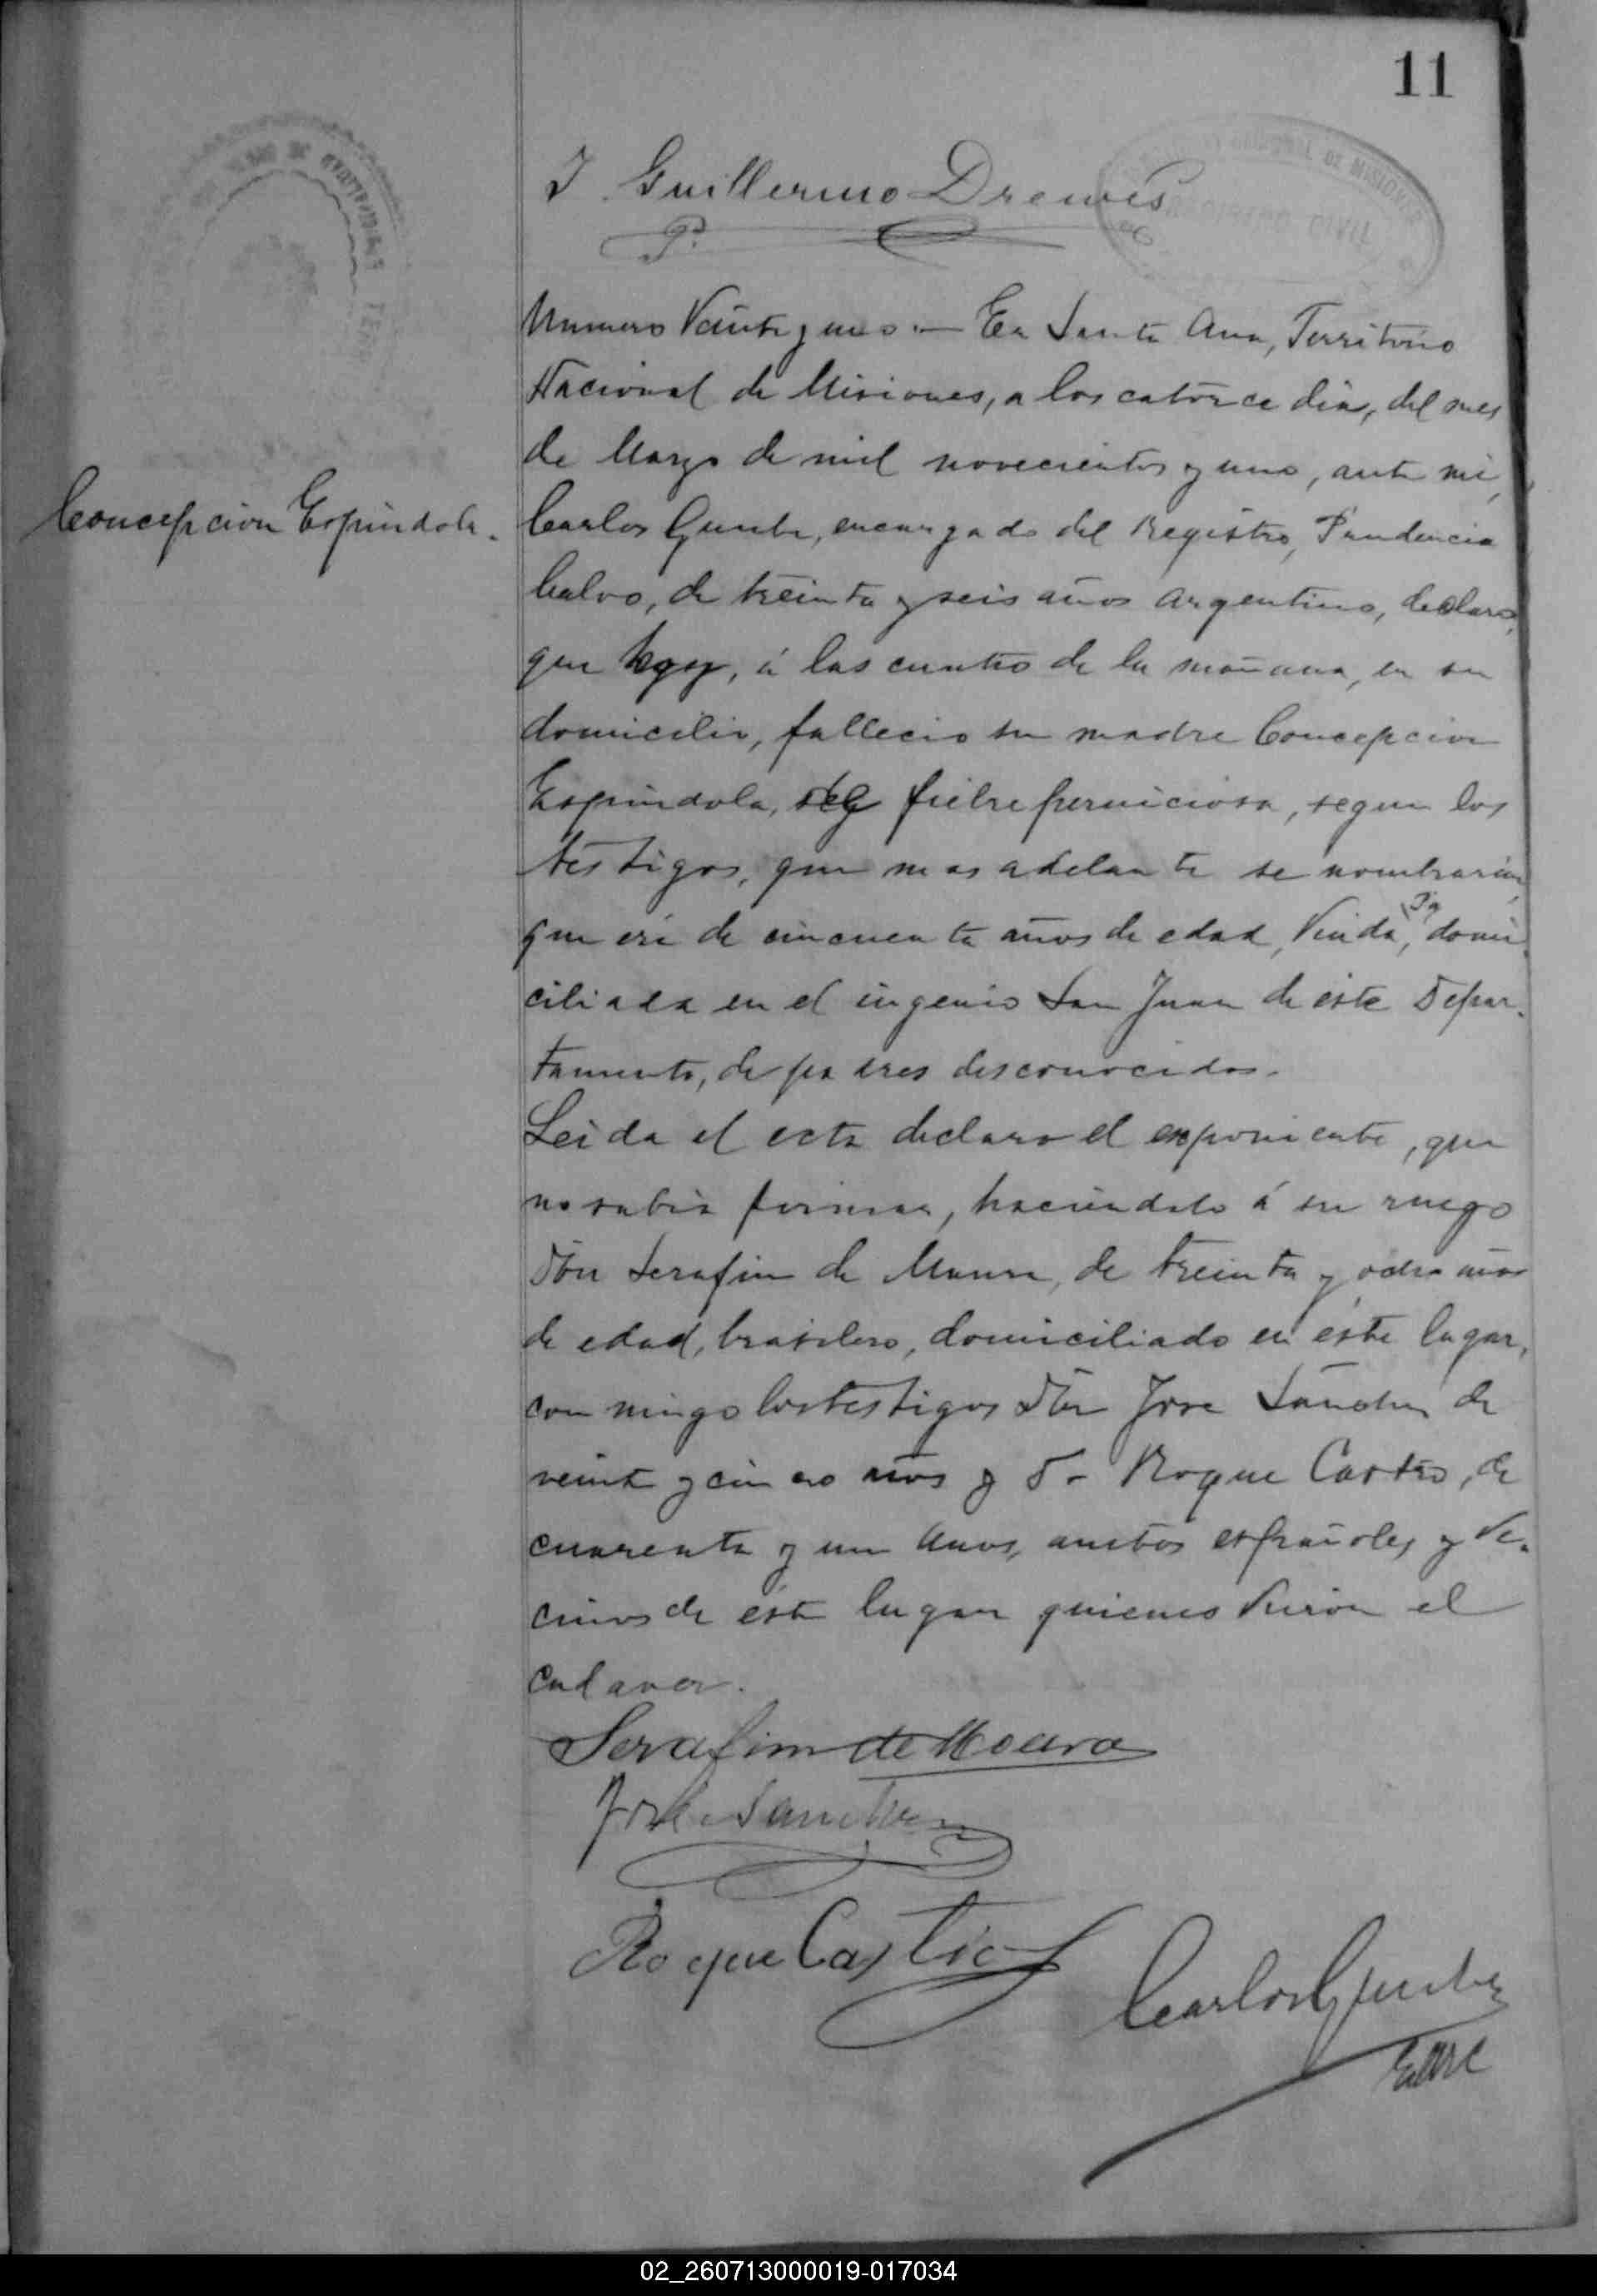 11
J. Guillermo Drewes
Numero Veinte y uno.— En Santa Ana, Territorio
Nacional de Misiones, a los catorce dias, del mes
de Marzo de mil novecientos y uno, ante mi,
Concepcion Espindola.
Carlos encargado del Registro, Prudencio
Calvo, de treinta y seis años argentino, declaro,
que hoy, á las cuatro de la mañana, en su
domicilio, fallecio su madre Concepcion
Espindola, de fiebre perniciosa, segun los
testigos, que mas adelante se nombrarán,
que era de cincuenta años de edad, Viuda, domi-
ciliada en el ingenio San Juan de éste Depar-
tamento, de padres desconocidos.
Leida el acta declaro el exponente, que
no sabia firmar, haciendolo á su ruego
Don Serafin de Moura, de treinta y ocho años
de edad, brasilero, domiciliado en éste lugar,
con migo los testigos Don Jose Sanchez de
veinte y cinco años y D. Roque Castro, de
cuarenta y un años, ambos españoles y ve-
cinos de éste lugar quienes vieron el
cadaver.
Serafim de Moura
José Sanchez
Roque Castro
Carlos